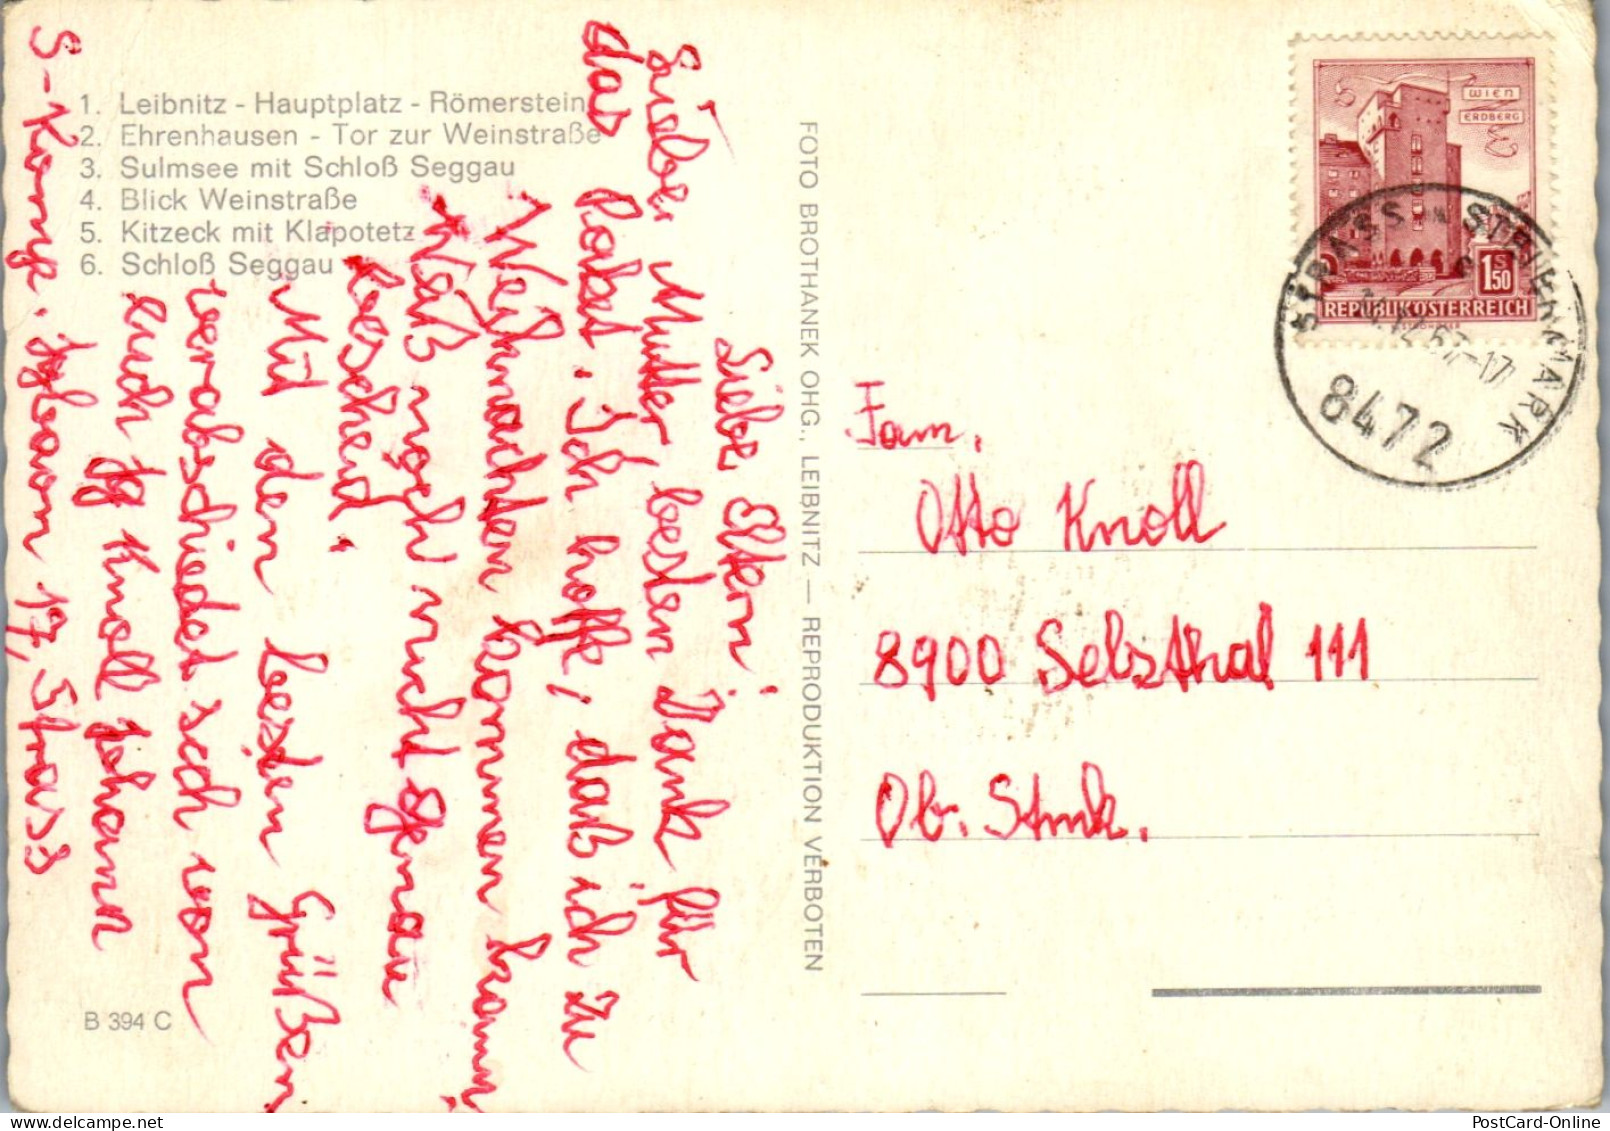 1. Leibnitz - Hauptplatz - Römerstein
2. Ehrenhausen - Tor zur Weinstraße
3. Sulmsee mit Schloß Seggau
4. Blick Weinstraße
5. Kitzeck mit Klapotetz
6. Schloß Seggau
Liebe Eltern!
Lieber Mutter, besten Dank für
das Paket. Ich hoffe, daß ich zu
Weihnachten kommen kann
Waß noch nicht genau
bescheid.
Mit den besten Grüßen
verabschiedet sich von
euch Jg Knoll Johann
S-Komp. Jgbaon 17, Strass
B 394 C
FOTO BROTHANEK OHG., LEIBNITZ — REPRODUKTION VERBOTEN
WIEN
ERDBERG
1 S 50
REPUBLIK ÖSTERREICH
STRASS IN STEIERMARK
67-17
8472
Fam.
Otto Knoll
8900 Selzthal 111
Ob. Stmk.
PostCard-Online